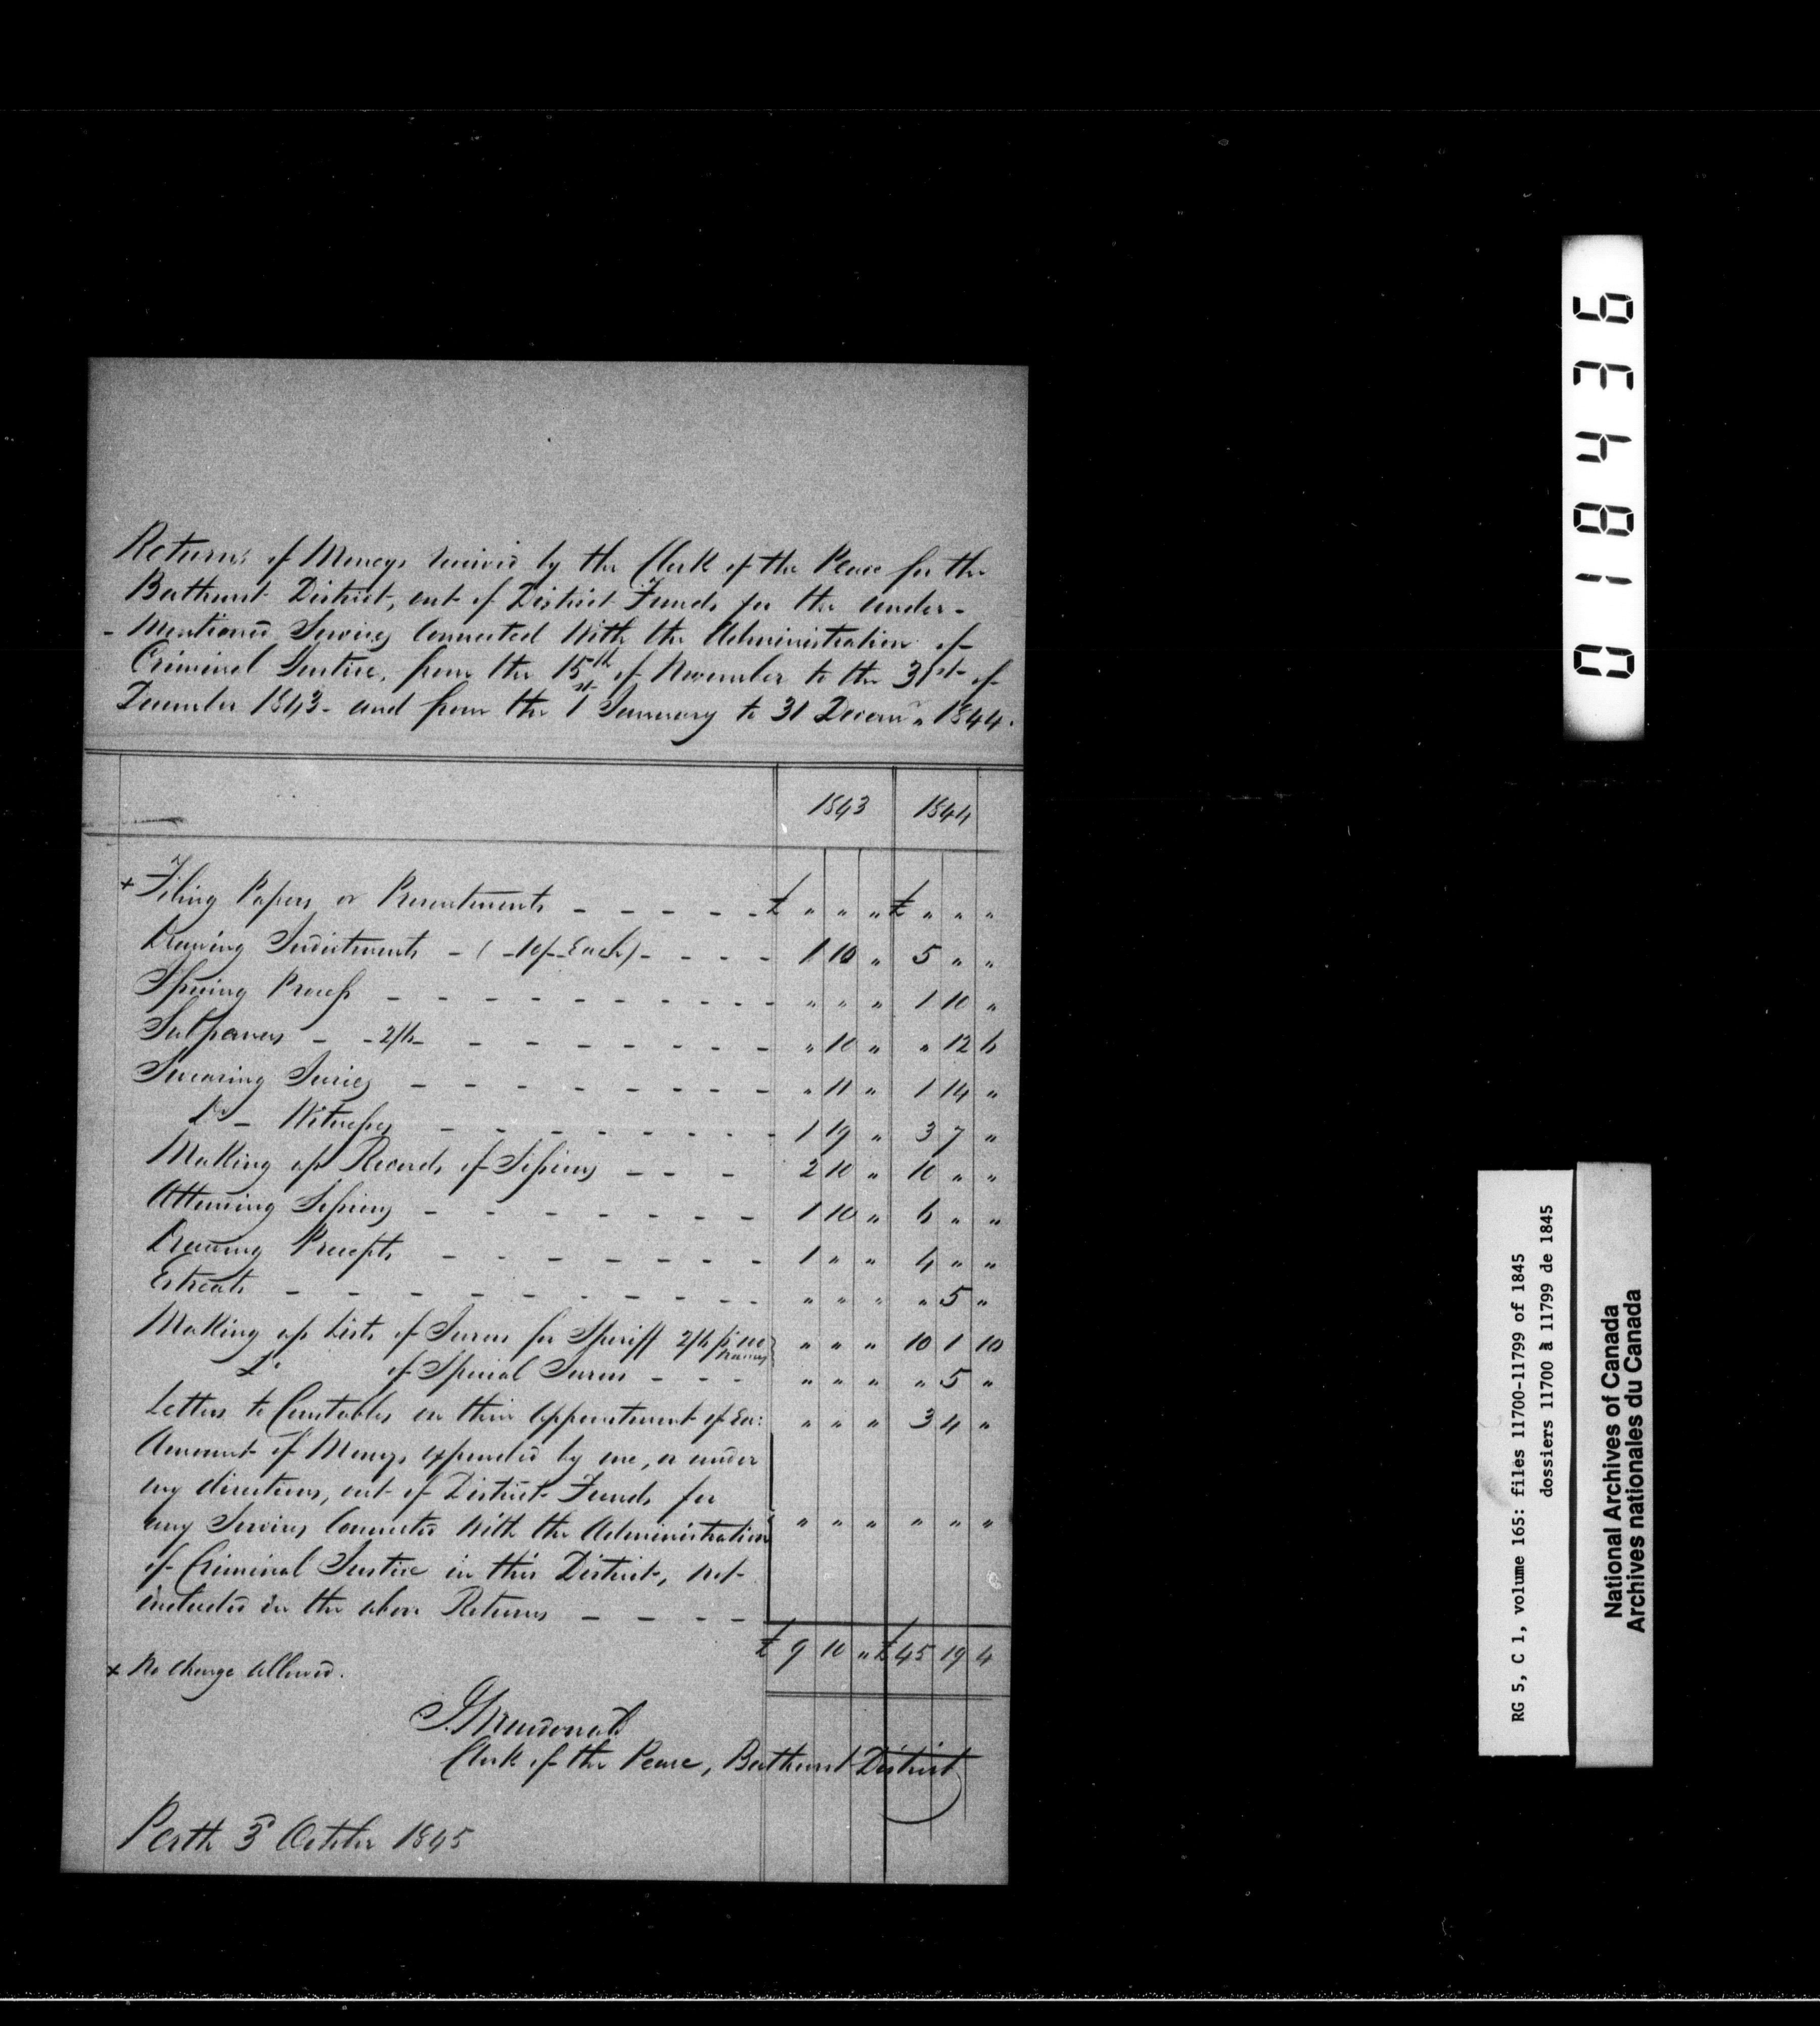 Returns of Moneys received by the Clerk of the Peace for the
Bathurst District, out of District Funds for the under-
- mentioned Services connected with the Administration of
Criminal Justice, from the 15th of November to the 31st of
December 1843 - and from the 1st January to 31 Decemr 1844.
1843 1844
+ Filing Papers or Presentments - - - - - £ " " " £ " " "
Drawing Indictments - ( - 10/- Each) - - - - 1 10 " 5 " "
Issuing Process - - - - - - - - - - " " " 1 10 "
Subpoenas - - 2/6 - - - - - - - - " 10 " " 12 6
Swearing Juries - - - - - - - - - " 11 " 1 14 "
Do - Witnesses - - - - - - - - 1 19 " 3 7 "
Making up Records of Sessions - - - 2 10 " 10 " "
Attending Sessions - - - - - - - 1 10 " 6 " "
Drawing Precepts - - - - - - - 1 " " 4 " "
Estreats - - - - - - - - - - - " " " " 5 "
Making up Lists of Jurors for Sheriff 2/6 p. 100 names } " " " 10 1 10
Do of Special Jurors - - - " " " " 5 "
Letters to Constables on their appointment of Do: " " " 3 4 "
Amount of Moneys expended by me, or under
my directions, out of District Funds for
any Services connected with the Administration " " " " " "
of Criminal Justice in this District, not
included in the above Returns - - - -
£ 9 10 " £ 45 19 4
x No charge allowed.
Clerk of the Peace, Bathurst District
Perth 3d October 1845
018436
RG 5, C 1, volume 165: files 11700-11799 of 1845
dossiers 11700 à 11799 de 1845
National Archives of Canada
Archives nationales du Canada